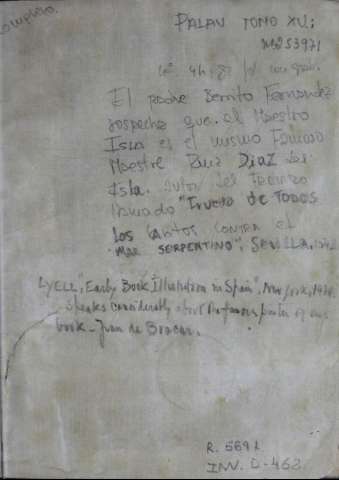 completo.
PALAU TOMO XVI;
Nº 253971
4 h.
El padre Benito Fernandez
sospecha que el Maestro
Isla es el mismo famoso
Maestre Ruiz Diaz de
Isla. autor del
llamado "Fruto de TODOS
LOS Santos CONTRA el
MAL SERPENTINO", SEVILLA, 1542
LYELL, "Early Book Illustration in Spain", New York, 1926.
Speaks considerably about the famous printer of our
book - Juan de Brocar.
R. 5691
INV. D-462